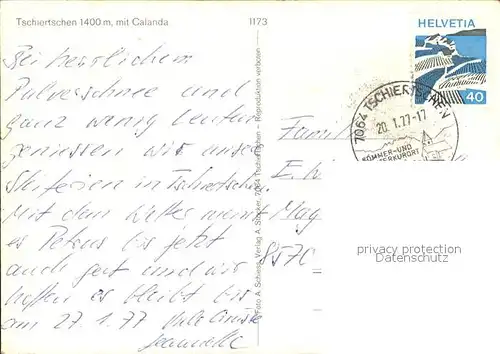 Tschiertschen 1400 m, mit Calanda
1173
HELVETIA
40
7064 TSCHIERTSCHEN
20.1.77-17
SOMMER- UND
WINTERKURORT
Bei herrlichem
Pulverschnee und
ganz wenig Leuten
geniessen wir unsere
Skiferien in Tschiertschen.
Mit dem Wetter meint
es Petrus bis jetzt
auch gut und wir
hoffen es bleibt bis
am 27.1.77
Foto A. Schiess, Verlag A. Stocker, 7064 Tschiertschen - Reproduktion verboten
Famil
E. W
May
8570
privacy protection
Datenschutz